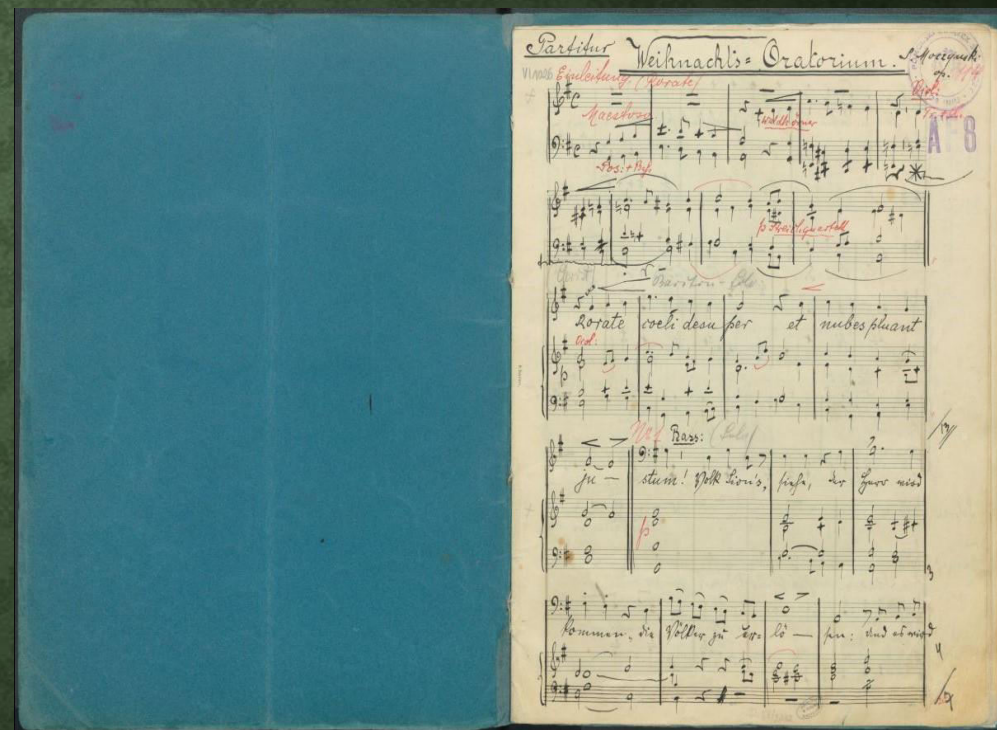 Partitur Weihnachts=Oratorium. S. Moczynski
op.
Einleitung. (Rorate)
Maestoso
Waldhörner
A F 8
Pos: + Bß.
p Streichquartett
Bariton-Solo:
Rorate coeli desuper et nubes pluant
Viol:
No 1 Bass: (Solo)
ju — stum! Volk Sion's, siehe, der Herr wird
p
kommen, die Völker zu erlö — sen: und es wird